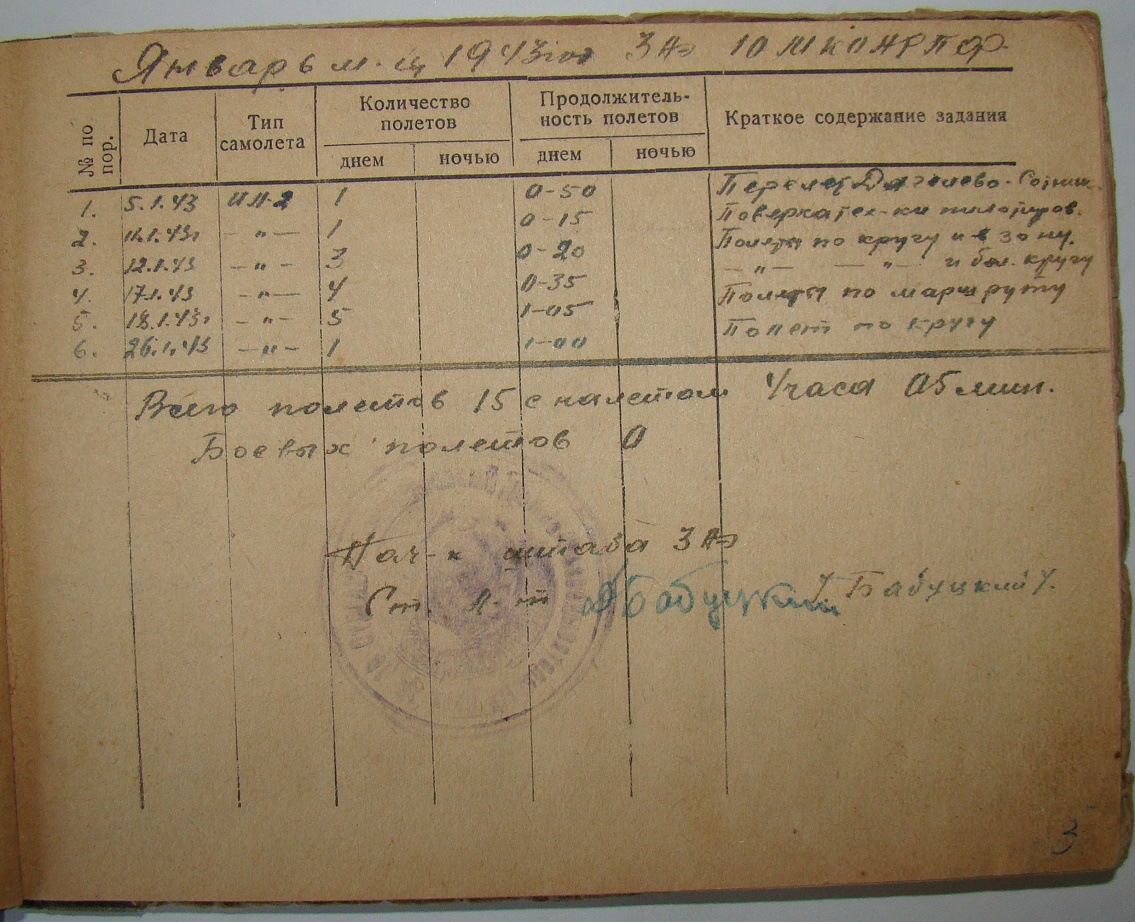 Январь м-ц 1943 год 3 АЭ 10 МКОАРПФ
№ по пор. Дата Тип самолета Количество полетов Продолжительность полетов Краткое содержание задания
днем ночью днем ночью
1. 5.1.43 ИЛ-2 1 0-50 Перелет Дягилево-
2. 11.1.43г -"- 1 0-15 Поверка тех-ки пилотиров.
3. 12.1.43 -"- 3 0-20 Полеты по кругу и в зону.
4. 17.1.43 -"- 4 0-35 -"- -"- и бол. кругу
5. 18.1.43г -"- 5 1-05 Полеты по маршруту
6. 26.1.43 -"- 1 1-00 Полет по кругу
Всего полетов 15 с налетом 4 часа 05 мин.
Боевых полетов 0
Нач-к штаба 3 АЭ
Ст. л-т Бабуцкий /Бабуцкий/.
3